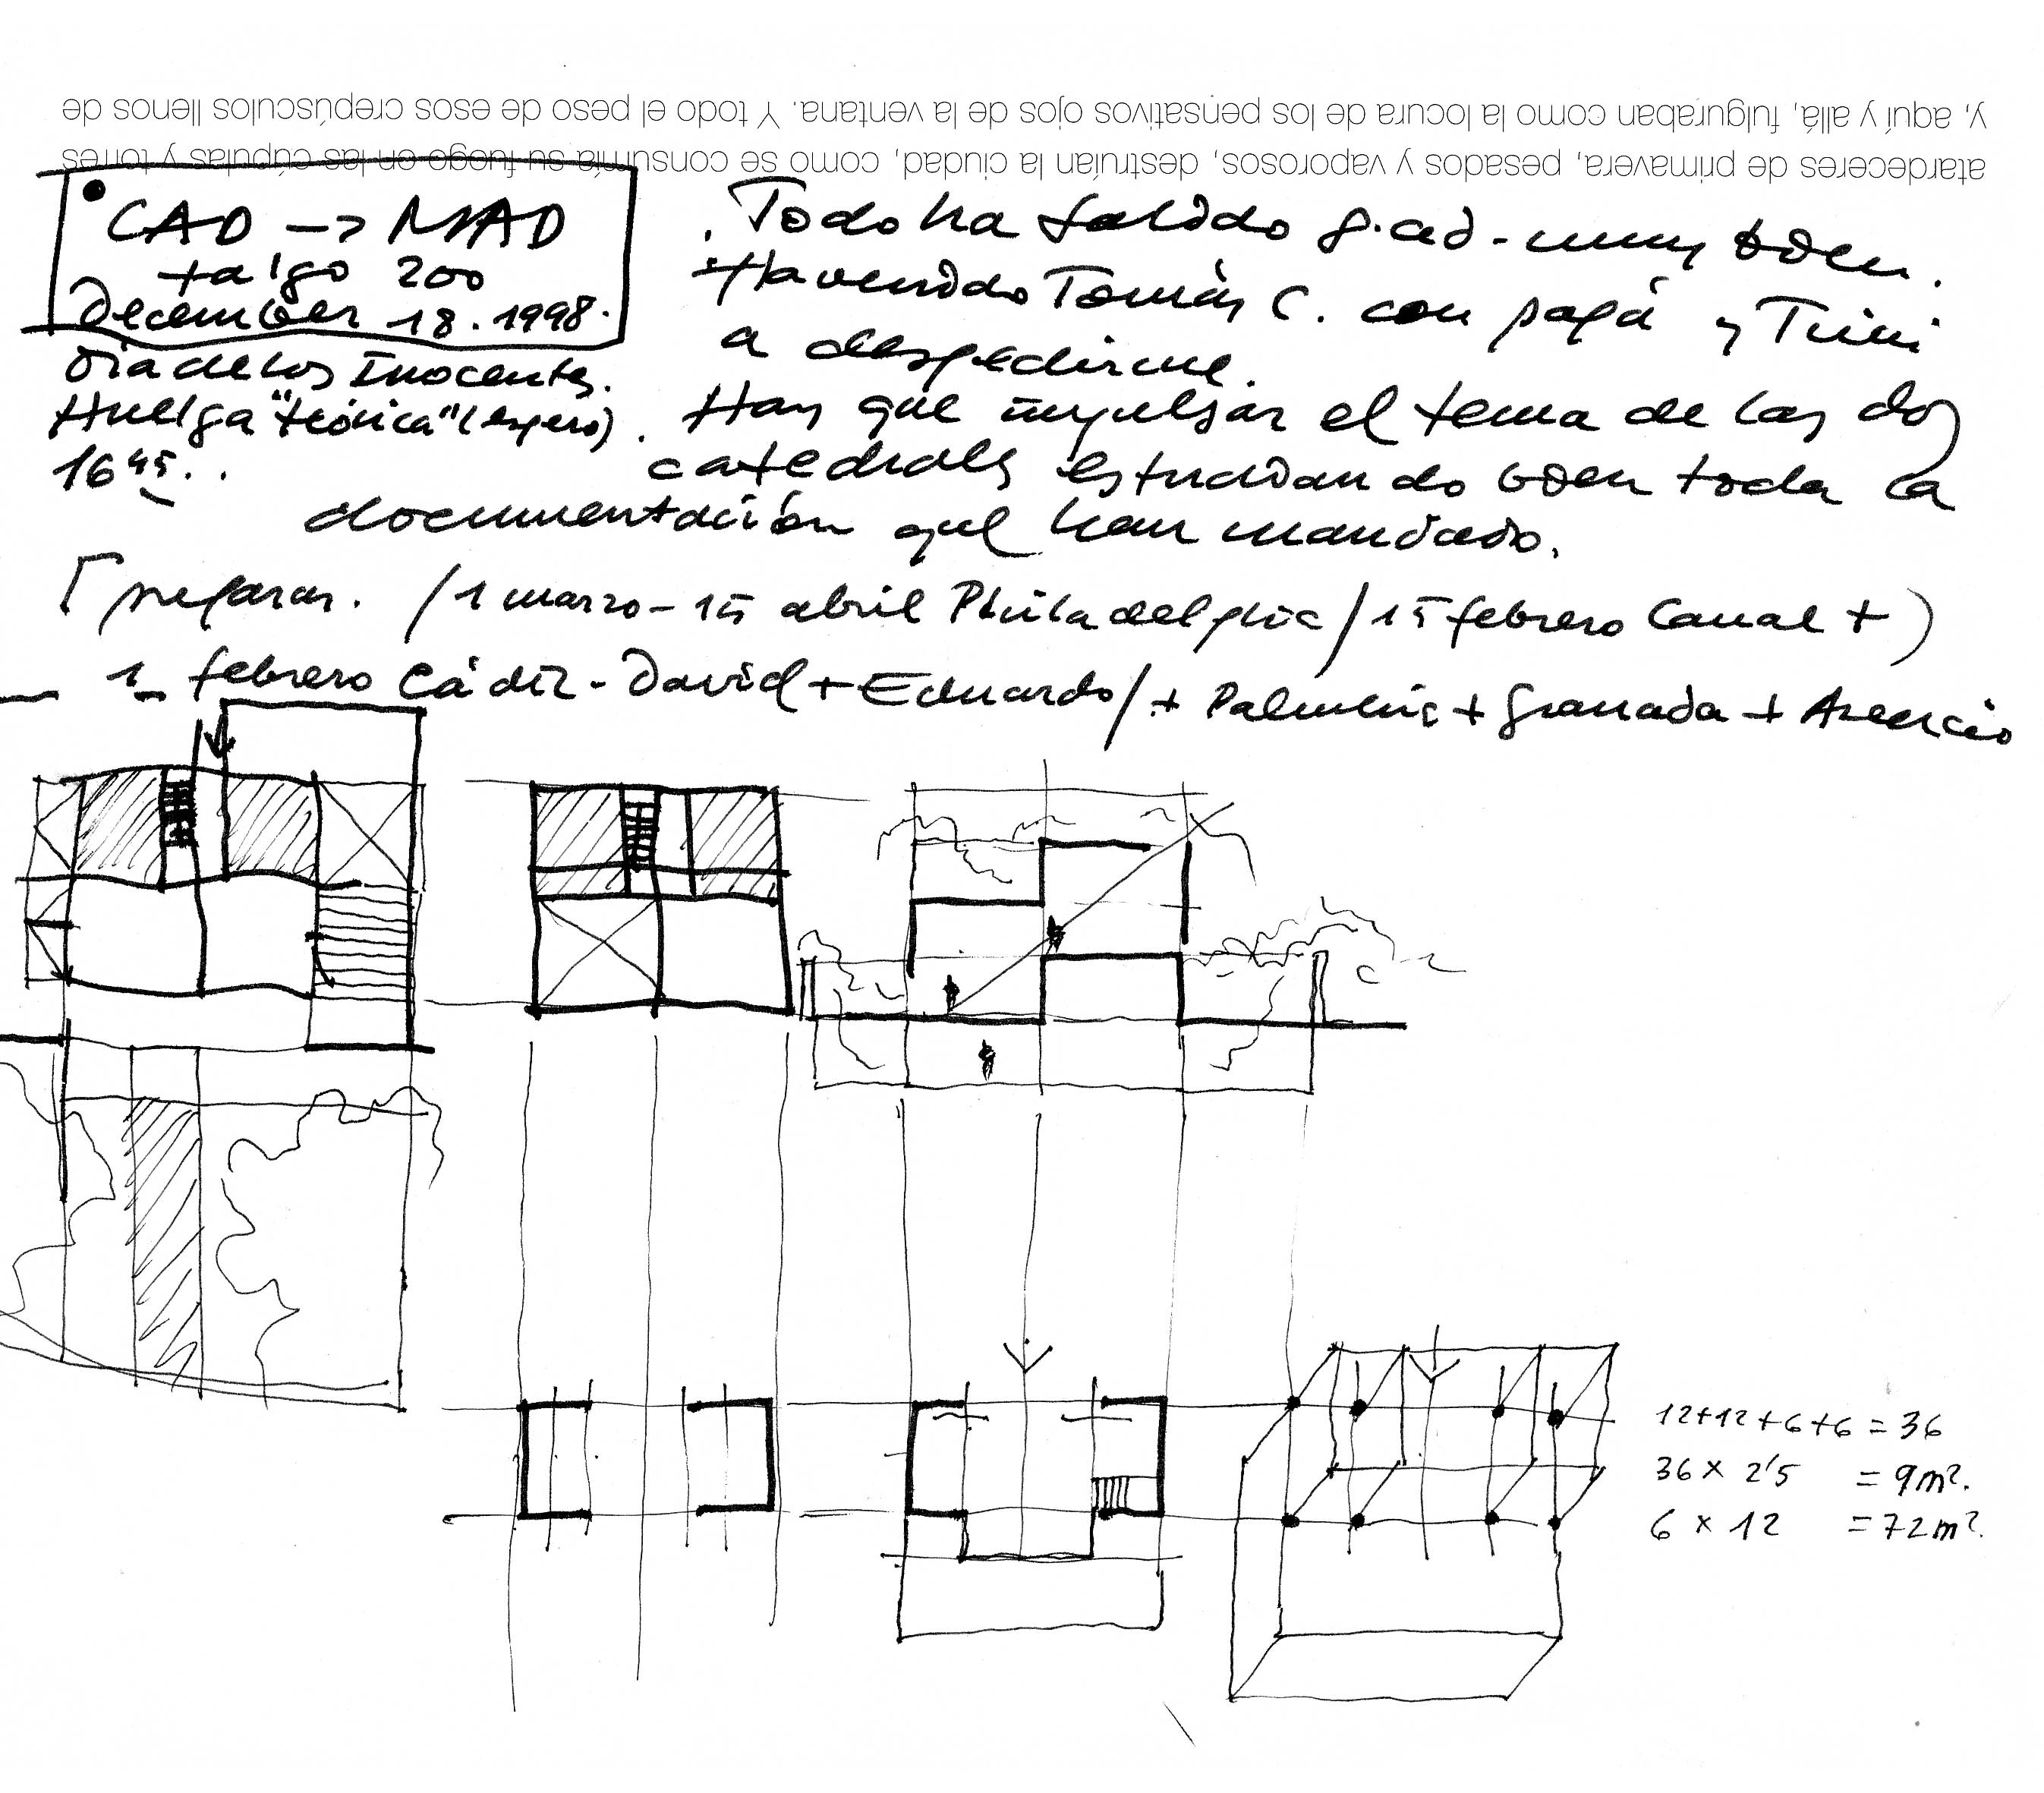 y, aquí y allá, fulguraban como la locura de los pensativos ojos de la ventana. Y todo el peso de esos crepúsculos llenos de
atardeceres de primavera, pesados y vaporosos, destruían la ciudad, como se consumía su fuego en las cúpulas y torres
CAD -> MAD
talgo 200
December 18.1998.
Día de los Inocentes.
Huelga "teórica" (espero)
16 45..
. Todo ha salido g.ad - muy bien.
Ha venido Tomás C. con papá y Trini
a despedirme.
. Hay que impulsar el tema de las dos
catedrales estudiando bien toda la
documentación que han mandado.
[preparar. / 1 marzo - 15 abril Philadelphia / 15 febrero Canal +)
1 febrero Cádiz - David + Eduardo / + + Granada + Asencio
12+12+6+6 = 36
36 x 2'5 = 9m².
6 x 12 = 72m².